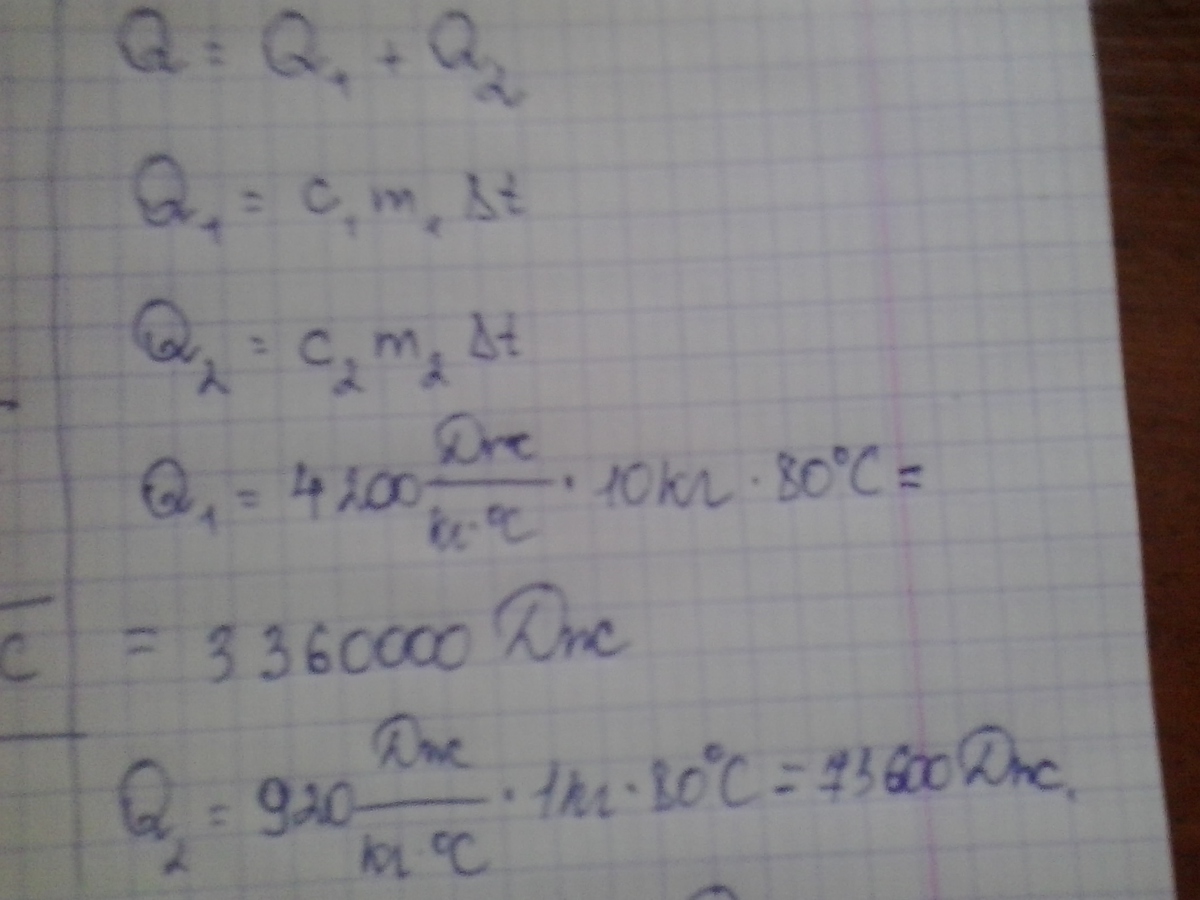 Q = Q₁ + Q₂
Q₁ = c₁m₁ Δt
Q₂ = c₂m₂ Δt
Q₁ = 4200 Дж/кг·°C · 10кг · 80°C =
c = 3360000 Дж
Q₂ = 920 Дж/кг·°C · 1кг · 80°C = 73600 Дж.